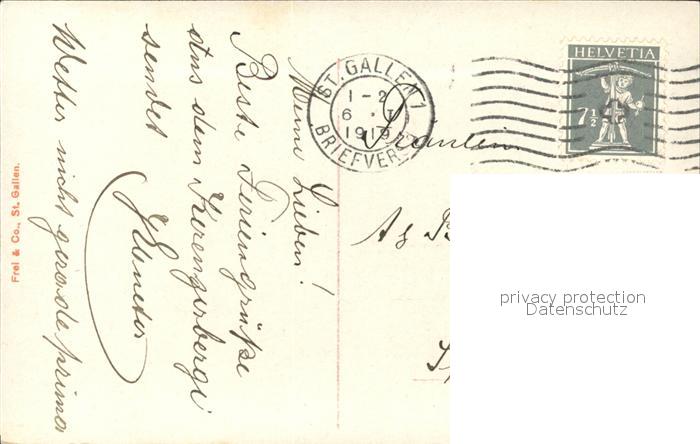 Meine Lieben!
Beste Feriengrüße
aus dem Kerenzerbergi
sendet
Wetter nicht gerade prima
Frei & Co., St. Gallen.
ST. GALLEN 1
1-2
6. I
1919
BRIEFVERS
HELVETIA
7½
Fräulein
privacy protection
Datenschutz